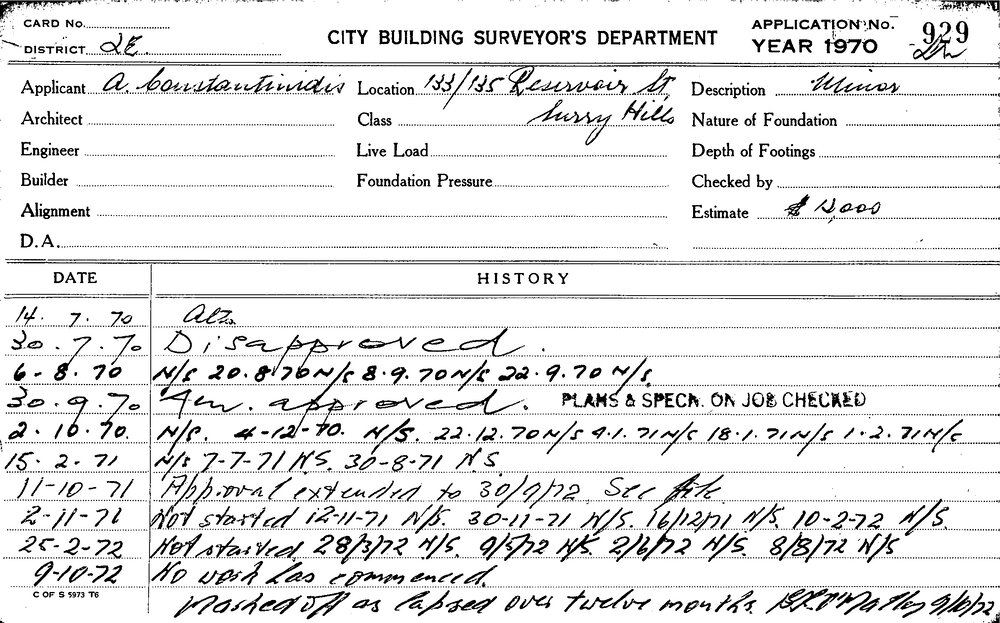 CARD No.
DISTRICT 2E
CITY BUILDING SURVEYOR'S DEPARTMENT
APPLICATION No. 929
YEAR 1970
Applicant A. Constantinidis
Location 133/135 Reservoir St,
Description Minor
Architect
Class Surry Hills
Nature of Foundation
Engineer
Live Load
Depth of Footings
Builder
Foundation Pressure
Checked by
Alignment
Estimate $ 12,000
D.A.
DATE HISTORY
14. 7. 70 Altn
30. 7. 70 Disapproved.
6-8.70 N/S 20.8.70 N/S 8.9.70 N/S 22.9.70 N/S.
30.9.70 approved. PLANS & SPECN. ON JOB CHECKED
2.10.70. N/S. 4-12-70. N/S. 22.12.70 N/S 9.1.71 N/S 18.1.71 N/S 1.2.71 N/S
15.2.71 N/S 7-7-71 N.S. 30-8-71 N.S.
11-10-71 Approval extended to 30/9/72 See file
2-11-71 Not started 12-11-71 N/S. 30-11-71 N/S. 16/12/71 N/S. 10-2-72 N/S
25-2-72 Not started 28/3/72 N/S. 9/5/72 N/S. 2/6/72 N/S. 8/8/72 N/S
9-10-72 No work has commenced.
C OF S 5973 T6
Marked off as lapsed over twelve months. 9/10/72